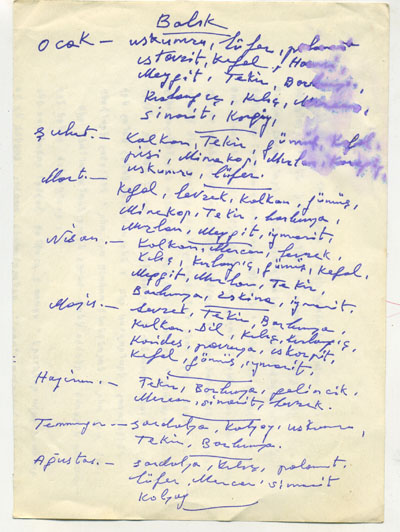 Balık
Ocak – uskumru, lüfer, palamut
istavrit, Kefal, Hamsi,
Mezgit, Tekir, Barbunya,
Kırlangıç, Kılıç, Mercan,
sinarit, Kolyoz,
Şubat. – Kalkan, Tekir, gümüş, Kefal,
pisi, Minekop, Mızlan,
Mart. – uskumru, lüfer.
Kefal, levrek, Kalkan, gümüş,
Minekop, Tekir, barbunya,
Mızlan, Mezgit, izmarit,
Nisan. – Kalkan, Mercan, levrek,
Kılıç, kırlangıç, gümüş, Kefal,
Mezgit, Mızlan, Tekir,
Barbunya, Eskina, izmarit.
Mayıs – Levrek, Tekir, Barbunya,
Kalkan, Dil, Kılıç, kırlangıç,
Karides, pavurya, iskorpit,
Kefal, gümüş, izmarit,
Haziran. – Tekir, Barbunya, gelincik,
Mercan, sinarit, levrek.
Temmuz – sardalya, Kolyoz, uskumru,
Tekir, Barbunya.
Ağustos. – sardalya, Kılıç, palamut.
lüfer, Mercan, sinarit
Kolyoz